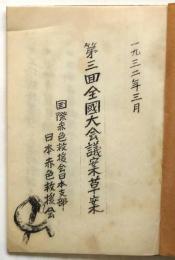 一九三二年三月
第三回全國大会議案草案
国際赤色救援会日本支部
日本赤色救援会